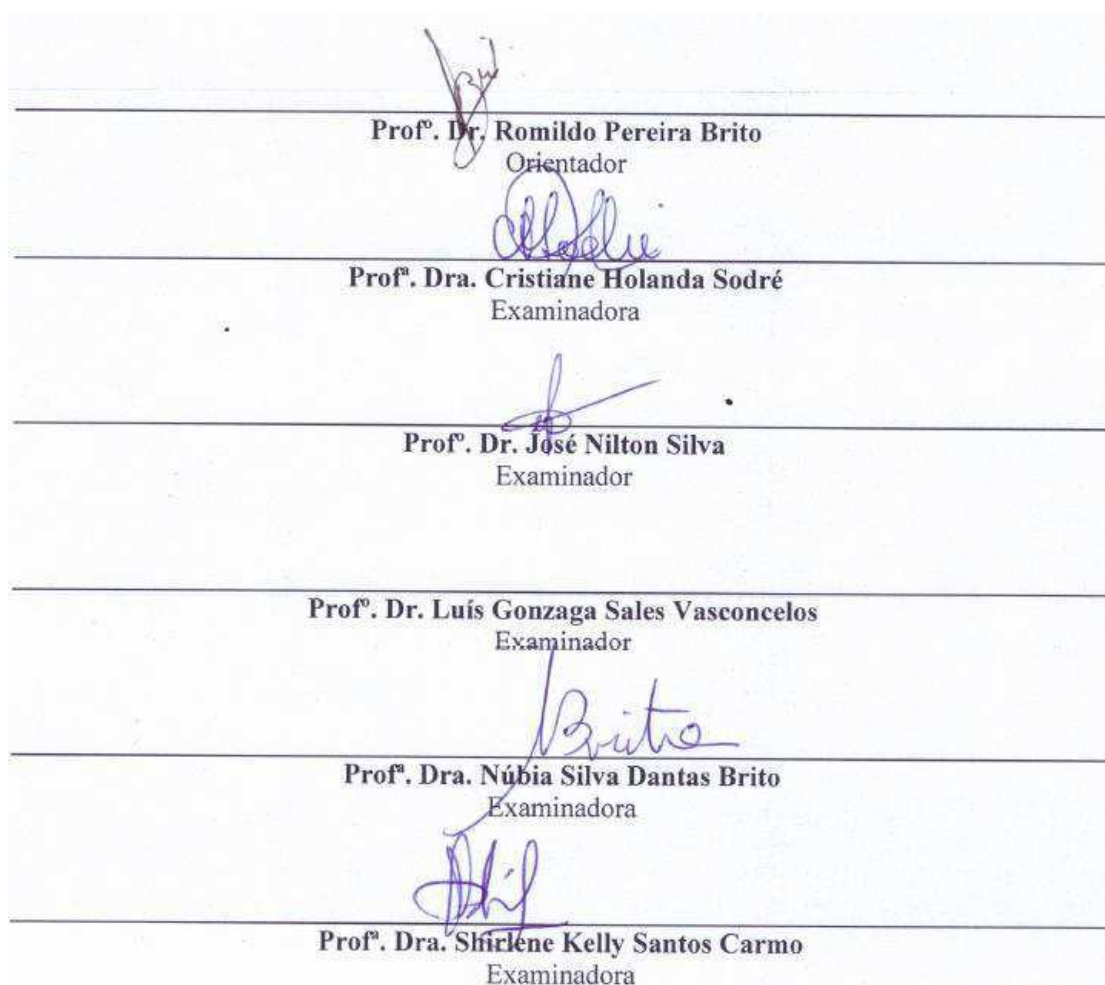 Profº. Dr. Romildo Pereira Brito
Orientador
Profª. Dra. Cristiane Holanda Sodré
Examinadora
Profº. Dr. José Nilton Silva
Examinador
Profº. Dr. Luís Gonzaga Sales Vasconcelos
Examinador
Brito
Profª. Dra. Núbia Silva Dantas Brito
Examinadora
Profª. Dra. Shirlene Kelly Santos Carmo
Examinadora